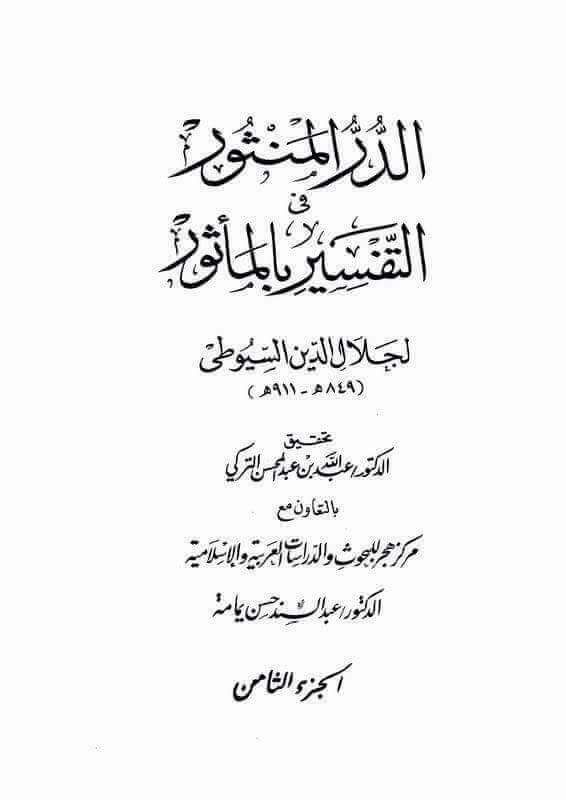 الدُّرُّ المَنْثُور
فى
التَّفْسِيرِ بِالمَأْثُور
لجَلَالِ الدِّين السِّيُوطى
(٨٤٩هـ - ٩١١هـ)
تحقيق
الدكتور/ عبد اللَّه بن عبد المحسن التركي
بالتعاون مع
مركز هجر للبحوث والدراسات العربية والإسلامية
الدكتور/ عبد السند حسن يمامة
الجزء الثامن